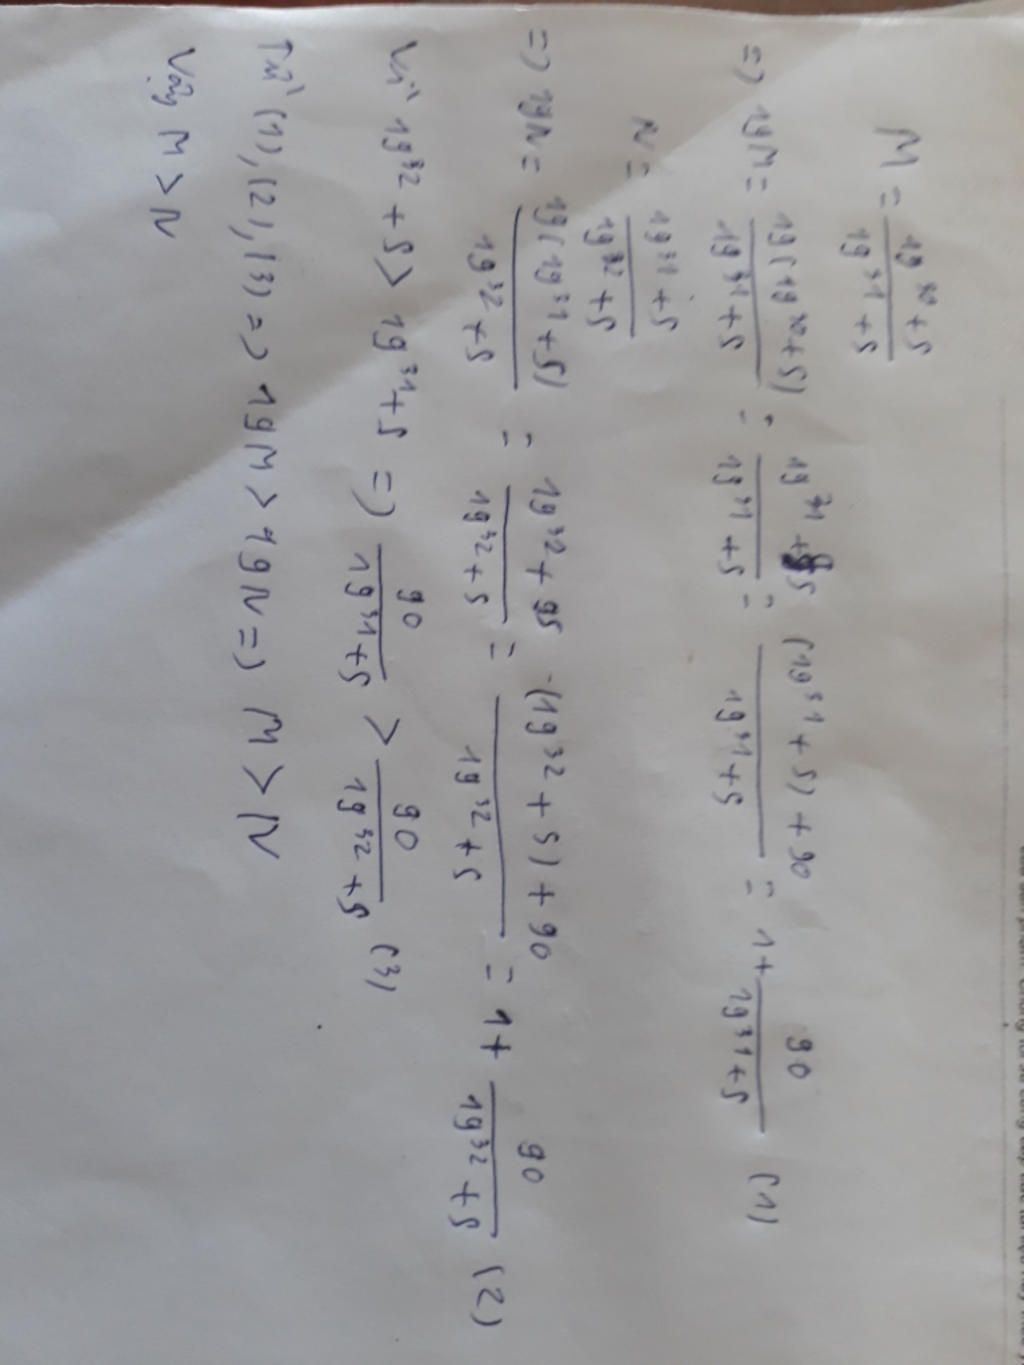 M = \frac{19^{30}+5}{19^{31}+5}
=> 19M = \frac{19(19^{30}+5)}{19^{31}+5} = \frac{19^{31}+95}{19^{31}+5} = \frac{(19^{31}+5)+90}{19^{31}+5} = 1+\frac{90}{19^{31}+5} (1)
N = \frac{19^{31}+5}{19^{32}+5}
=> 19N = \frac{19(19^{31}+5)}{19^{32}+5} = \frac{19^{32}+95}{19^{32}+5} = \frac{(19^{32}+5)+90}{19^{32}+5} = 1+\frac{90}{19^{32}+5} (2)
Vì 19^{32}+5 > 19^{31}+5 => \frac{90}{19^{31}+5} > \frac{90}{19^{32}+5} (3)
Từ (1), (2), (3) => 19M > 19N => M > N
Vậy M > N